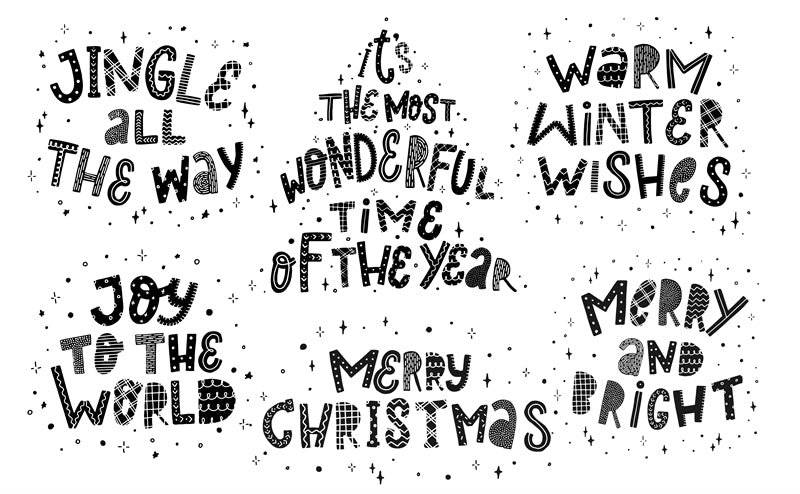 JINGLE
aLL
THE WaY
it's
THE MOST
WONDERFUL
TiME
OF THE YEaR
WaRM
WiNTER
WiSHeS
JOY
TO THE
WORLD
MERRY
CHRISTMaS
MERRY
aND
PRiGHT